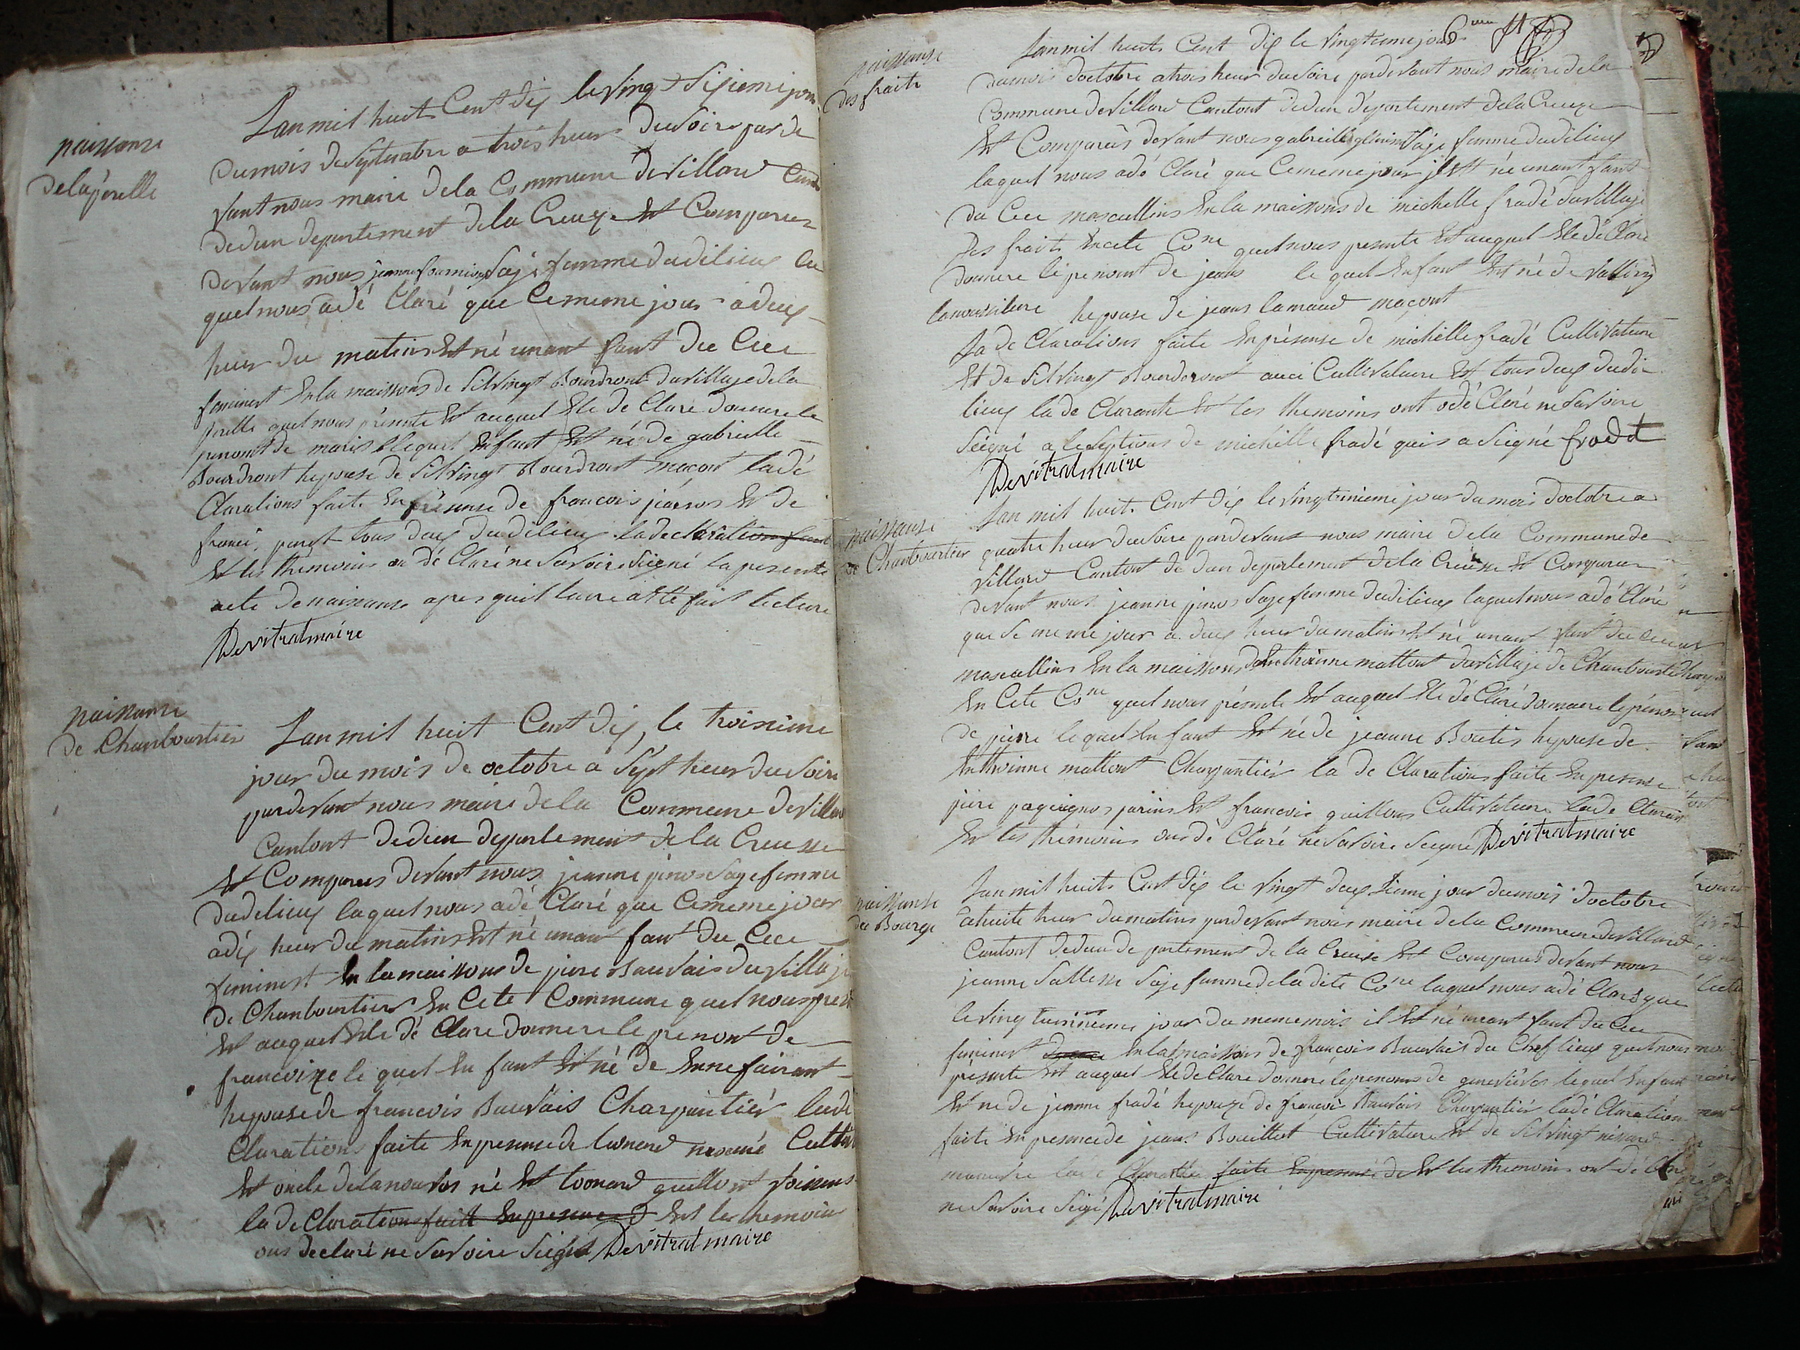 naissanse
delaporelle
Lan mil huit Cent dix le vingt sisieme jour
du mois de Septembre a trois heure du Soire par de
vant nous maire de la Commune de Villard Cant
dedun departement de la Creuze Est Comparue
devant nous jeanne fournioux Saje femme dudilieux la
quel nous adé Claré que Cememe jour a deux
heur du matins Est né unant fant du Cece
feminest En la maisons de Silvingt Bourdront du village de la
porelle quel nous présente Est auquel Ele de Claré donnere le
penont de marie lequel Enfant Est né de gabrielle
Bourdront hepouse de Silvingt Bourdront maçont la dé
Clarations faite En présense de francois jeanos Est de
tous deux dudilieux la declaration faite
Est les themoins on dé Claré ne Savoire Signé la presente
acte de naissanse apres quil laure a Ete fait lecture
Devitrat maire
naissanse
de Chanbourtier
Lan mil huit Cent dix, le troisieme
jour du mois de octobre a Sept heur du Soire
pardevant nous maire de la Commune de Villard
Cantont dedun departement de la Creusse
Est Comparues devant nous jeanne pinos Saje femme
dudelieux laquel nous adé Claré que Cememe jour
a dix heur du matins Est né unant fant du Cece
feminest En la maisons de piere Bauvais du village
de Chanbourtier En Cete Commune quel nous pres
Est auquel Ele dé Clare donnere le penont de
francoize le quel En fant Est né de Anne fairant
hepouse de francois Bauvais Charpantier la dé
Clarations faite En presense de leonard Cultiv
Est oncle de la nouvos né Est leonard guillont voisins
la de Clarations faite En presense d Est les themoins
ons declaré ne Savoire Signé Devitrat maire
naissanse
des fraite
6eme
Lan mil huit Cent dix le vingtieme jour
dumois doctobre a trois heur du Soire pardevant nous maire de la
Commune de Villard Cantont dedun departement de la Creuze
Est Comparues devant nous gabrielle Saje femme dudilieux
laquel nous adé Claré que Cememe jour il Est né unant fant
du Cece mascullins En la maisons de michelle fradé du village
des fraite En cete Cone quel nous presente Est auquel Ele dé Claré
donnere le penont de jean le quel Enfant Est né de
lanoussitere hepouse de jean lamaud maçont
La de Clarations faite En présense de michelle fradé Cultivature
Est de Silvingt Bourderont Cultivature Est tous deux dudi
lieux la de Clarante Est les themoins ont adé Claré ne Savoire
Seigné a leseptions de michelle fradé quis a Seigné fradet
Devitrat maire
naissanse
de Chanbourtier
Lan mil huit Cent dix le vingtunieme jour du mois doctobre a
quatre heur du Soire pardevant nous maire de la Commune de
Villard Cantont de dun departement de la Creusse Est Comparue
devant nous jeanne pinos Sajefemme dudilieux laquel nous adé Claré
que Se meme jour a deux heur du matins Est né unant fant du Cece
mascullins En la maisons danthoinne mattont du village de Chanbourtier
En Cete Cone quel nous présente Est auquel Ele dé Claré donnere le penont
de pierre le quel Enfant Est né de jeanne Boutis hepouse de
Anthoinne mattont Charpantier la de Clarations faite En presense
piere Est francois guillons Cultivature la de Clarant
Est les themoins ons dé Claré ne Savoire Seigné Devitrat maire
naissanse
du Bourge
Lan mil huit Cent dix le vingt deux Sieme jour dumois doctobre
a huite heur du matins pardevant nous maire de la Commune de Villard
Cantont dedun departement de la Creuse Est Comparue devant nous
jeanne Sallesse Saje femme de la dite Cone laquel nous adé Claré que
le vingtunieme jour du meme mois il Est né unant fant du Cece
feminest En la maisons de francois Bauvais du Chef lieux quel nous
presente Est auquel Ele de Claré donnere le penons de genevieve lequel Enfant
Est né de jeanne fradé hepouze de francois Bauvais Charpantier la dé Clarations
faite En presence de jean Bouillot Cultivature Est de Silvingt
la de Clarante faite En presense de Est les themoins ont dé Claré
ne Savoire Seigné Devitrat maire